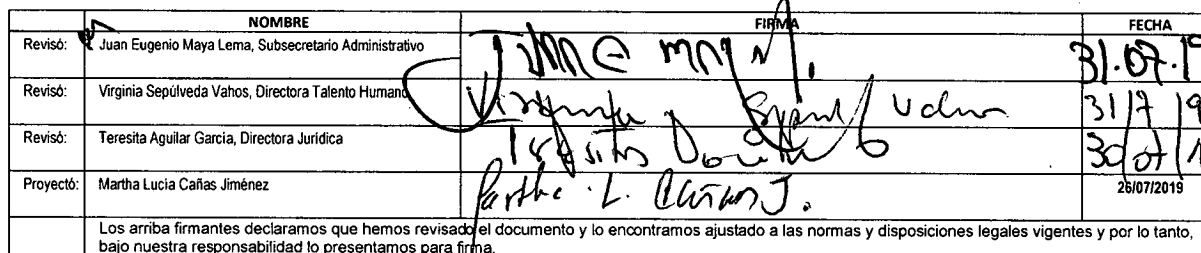 NOMBRE FIRMA FECHA
Revisó: Juan Eugenio Maya Lema, Subsecretario Administrativo 31.07.19
Revisó: Virginia Sepúlveda Vahos, Directora Talento Humano 31/7/19
Revisó: Teresita Aguilar García, Directora Jurídica 30/07/1
Proyectó: Martha Lucia Cañas Jiménez Martha L. Cañas J. 26/07/2019
Los arriba firmantes declaramos que hemos revisado el documento y lo encontramos ajustado a las normas y disposiciones legales vigentes y por lo tanto,
bajo nuestra responsabilidad lo presentamos para firma.